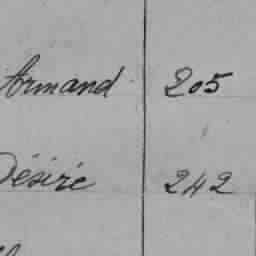 Armand 205
Désiré 242